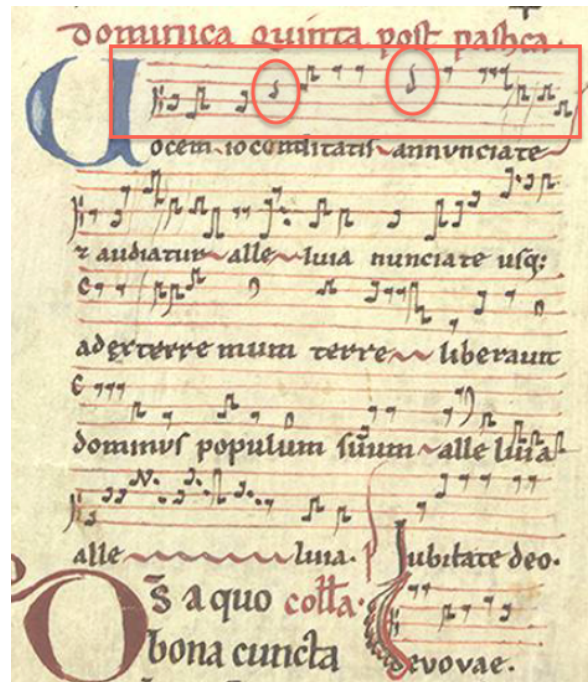 dominica quinta post pascha.
Uocem iocunditatis annunciate
⁊ audiatur alle luia nunciate usq;
ad extremum terre liberauit
dominus populum suum alle luia
alle luia. Iubilate deo.
Ds a quo
bona cuncta
evovae.